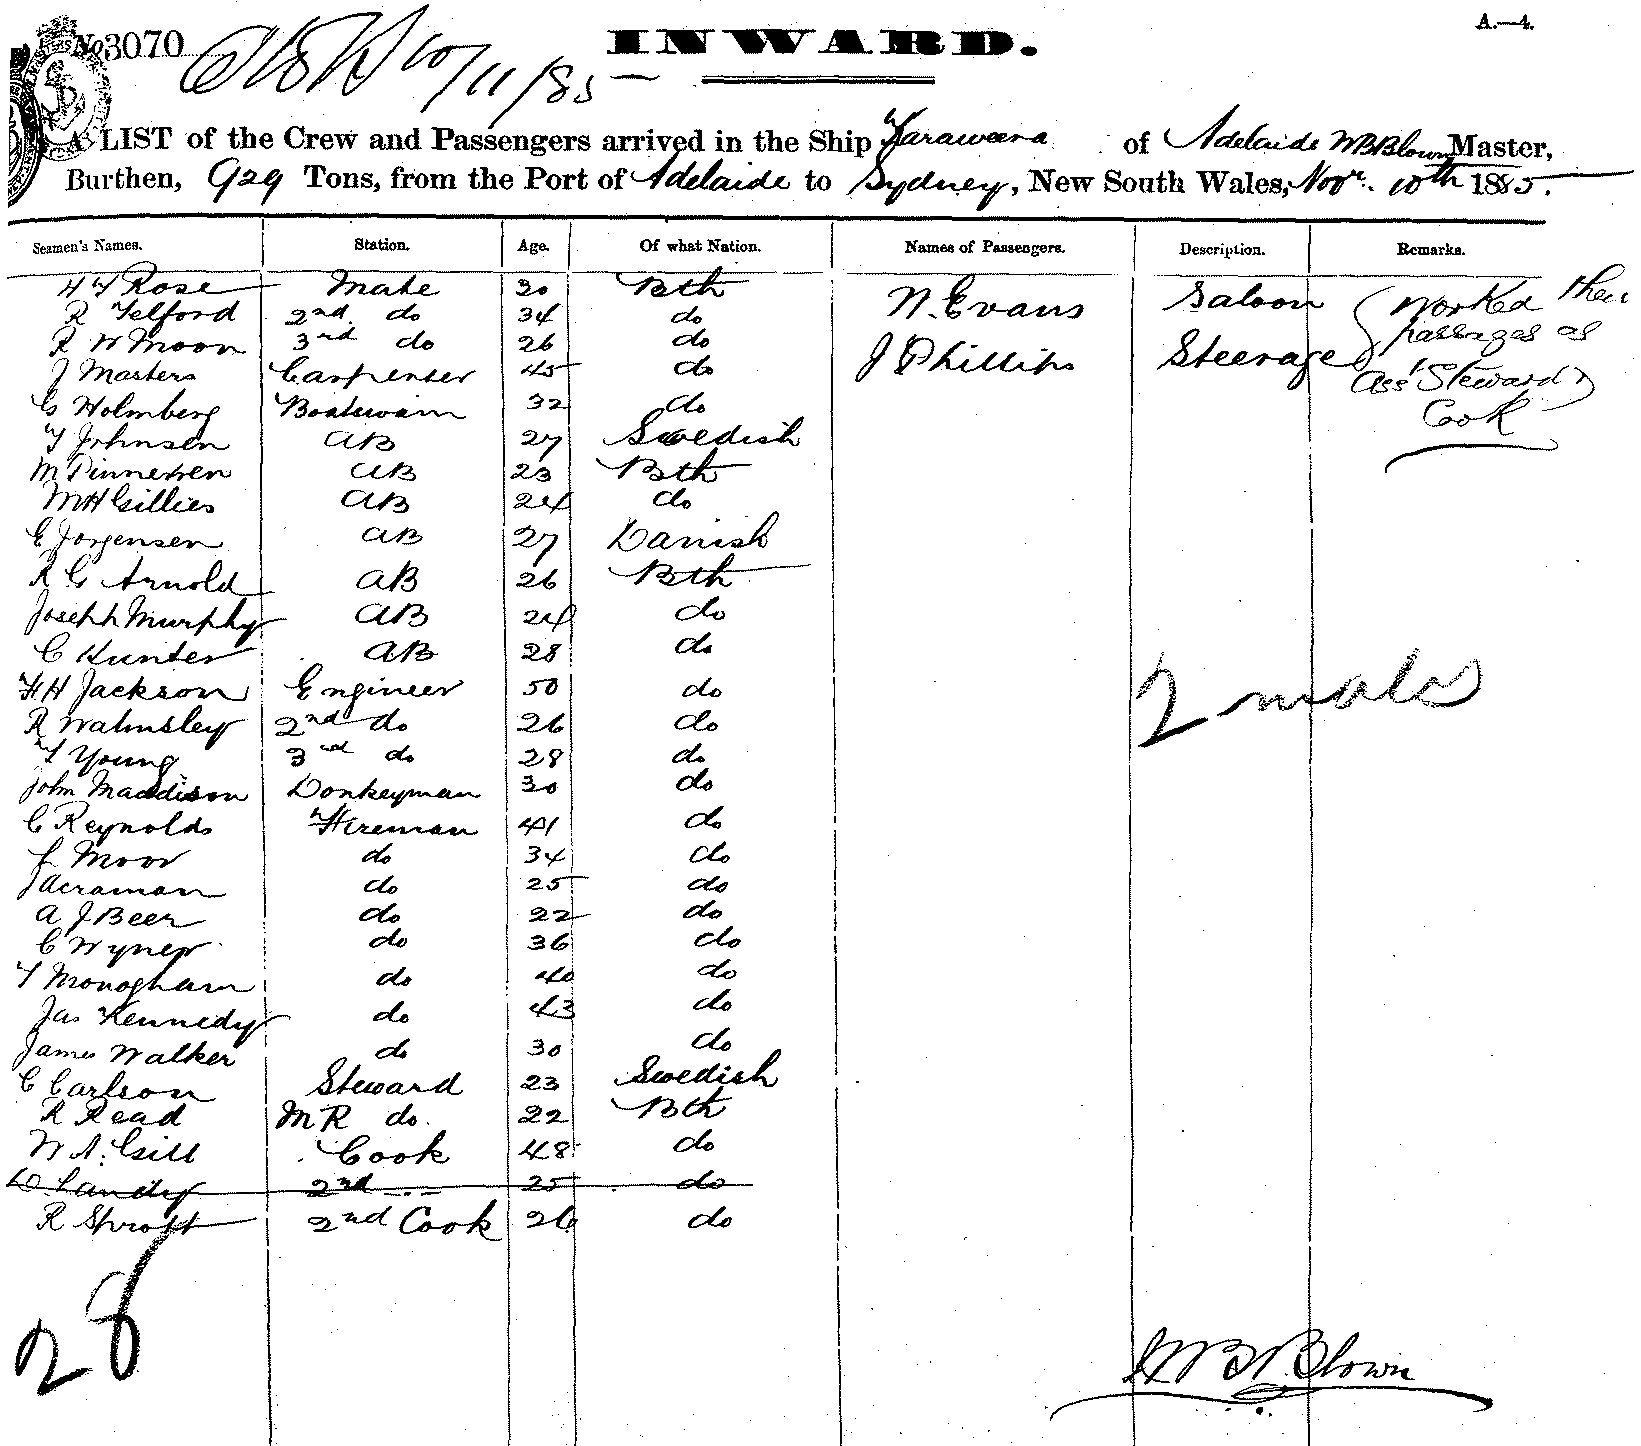 A.—4.
No 3070
10/11/85
INWARD.
A LIST of the Crew and Passengers arrived in the Ship Taraweena of Adelaide W B Blown Master,
Burthen, 929 Tons, from the Port of Adelaide to Sydney, New South Wales, Novr. 10th 1885.
Seamen's Names. Station. Age. Of what Nation. Names of Passengers. Description. Remarks.
H F Rose Mate 30 Bth N. Evans Saloon Worked their
R Telford 2nd do 34 do passages as
R W Moon 3rd do 26 do J Phillips Steerage
J Masters Carpenter 45 do Asst Steward &
G Holmberg Boatswain 32 do Cook
F Johnsen AB 27 Swedish
M AB 23 Bth
M H Gillies AB 24 do
E Jorgensen AB 27 Danish
R G Arnold AB 26 Bth
Joseph Murphy AB 24 do
C Hunter AB 28 do
F H Jackson Engineer 50 do 2 males
R Walmsley 2nd do 26 do
T Young 3rd do 28 do
John Maddison Donkeyman 30 do
C Reynolds Fireman 41 do
J Moor do 34 do
J Acraman do 25 do
A J Beer do 22 do
C do 36 do
T Monogham do 40 do
Jas Kennedy do 43 do
James Walker do 30 do
C Carlson Steward 23 Swedish
R Read M R do. 22 Bth
W A. Gill Cook 48 do
D Landy 2nd 25 do
R Shrott 2nd Cook 26 do
28
W B Blown